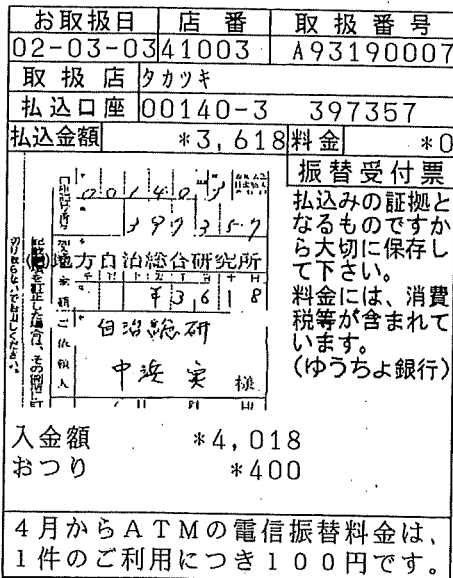 お取扱日 店番 取扱番号
02-03-03 41003 A93190007
取扱店 タカツキ
払込口座 00140-3 397357
払込金額 *3,618 料金 *0
振替受付票
払込みの証拠と
なるものですか
ら大切に保存し
て下さい。
料金には、消費
税等が含まれて
います。
(ゆうちょ銀行)
00140 3
397357
地方自治総合研究所
¥3618
ご依頼人
自治総研
中浜 実 様
切り取らないでお出しください。
入金額 *4,018
おつり *400
4月からATMの電信振替料金は、
1件のご利用につき100円です。